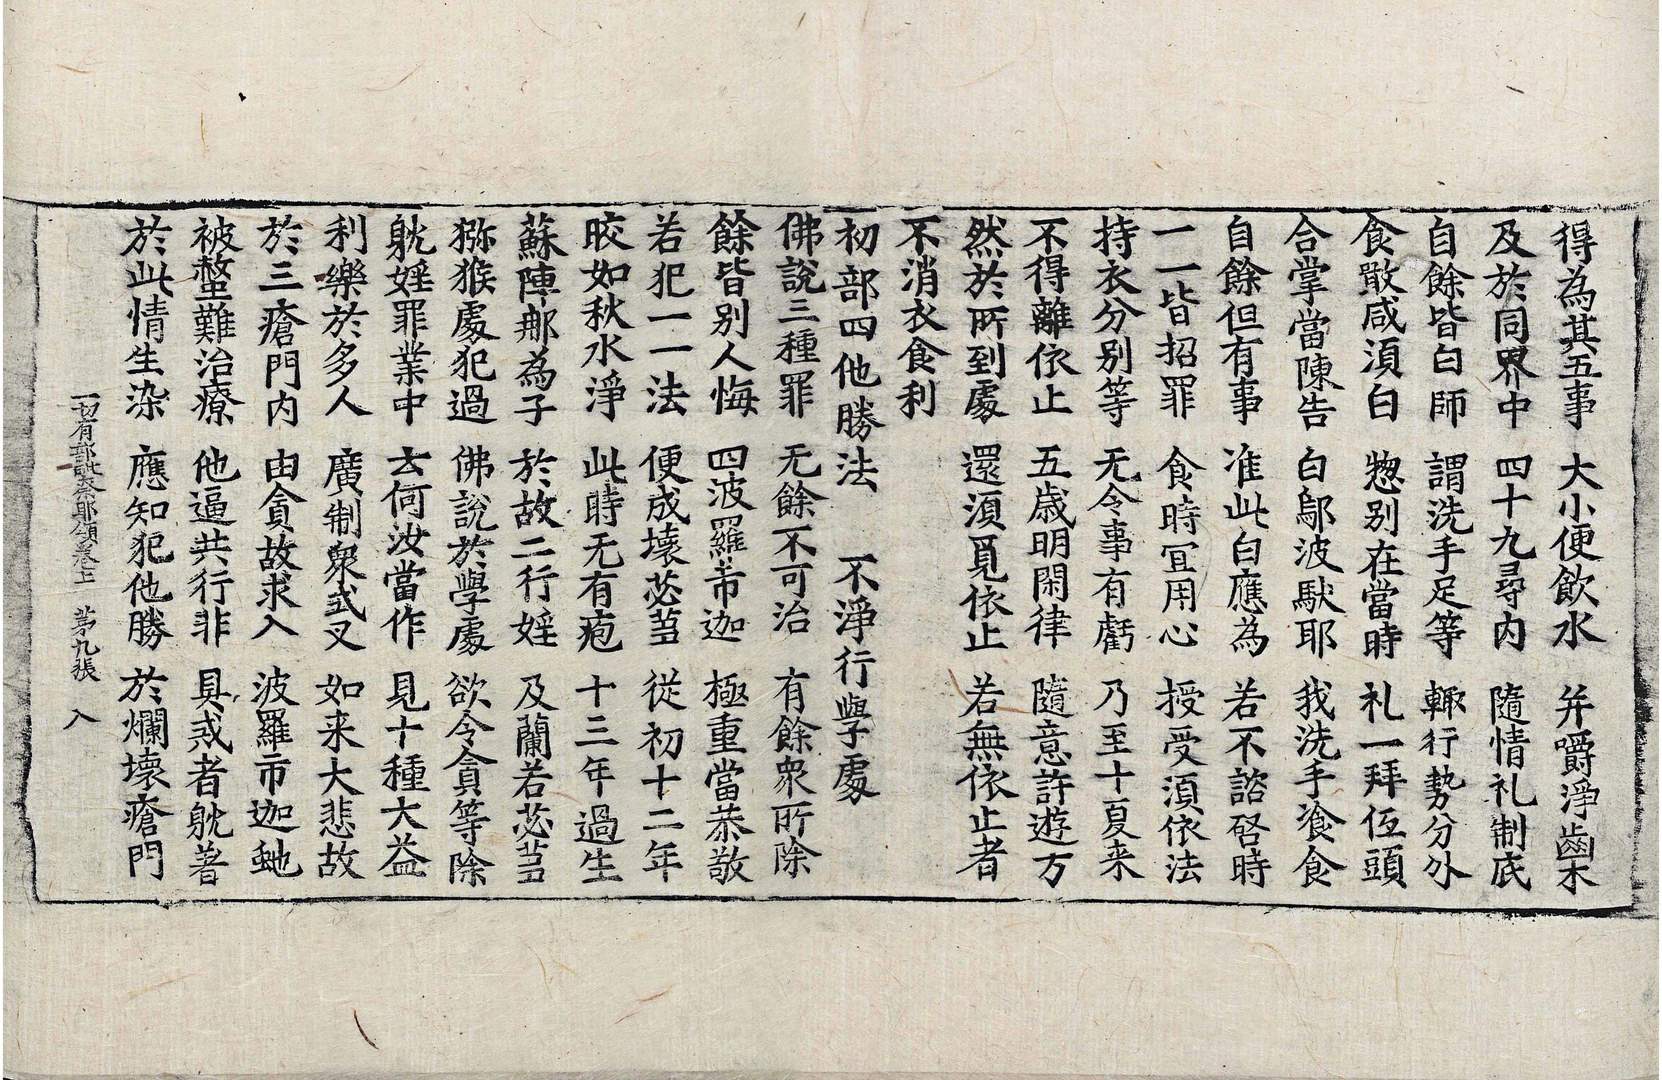 得為其五事　大小便飲水　并嚼淨齒木
及於同界中　四十九尋內　隨情礼制底
自餘皆白師　謂洗手足等　輙行勢分外
食噉咸湏白　惣别在當時　礼一拜伍頭
合掌當陳告　白鄔波馱耶　我洗手飡食
自餘但有事　准此白應為　若不諮啓時
一一皆招罪　食時冝用心　授受湏依法
持衣分别等　无令事有虧　乃至十夏来
不得離依止　五歳明閑律　隨意許遊方
然於所到處　還湏覓依止　若無依止者
不消衣食利
初部四他勝法　不淨行學處
佛說三種罪　无餘不可治　有餘衆所除
餘皆别人悔　四波羅市迦　極重當恭敬
若犯一一法　便成壞苾芻　從初十二年
晈如秋水淨　此時无有疱　十三年過生
蘇陣那為子　於故二行婬　及蘭若苾芻
猕猴處犯過　佛說於學處　欲令貪等除
躭婬罪業中　去何汝當作　見十種大益
利樂於多人　廣制衆式叉　如来大悲故
於三瘡門內　由貪故求入　波羅市迦虵
被螫難治療　他逼共行非　具戒者躭著
於此情生染　應知犯他勝　於爛壞瘡門
一切有部毗奈耶頌卷上　苐九張　入